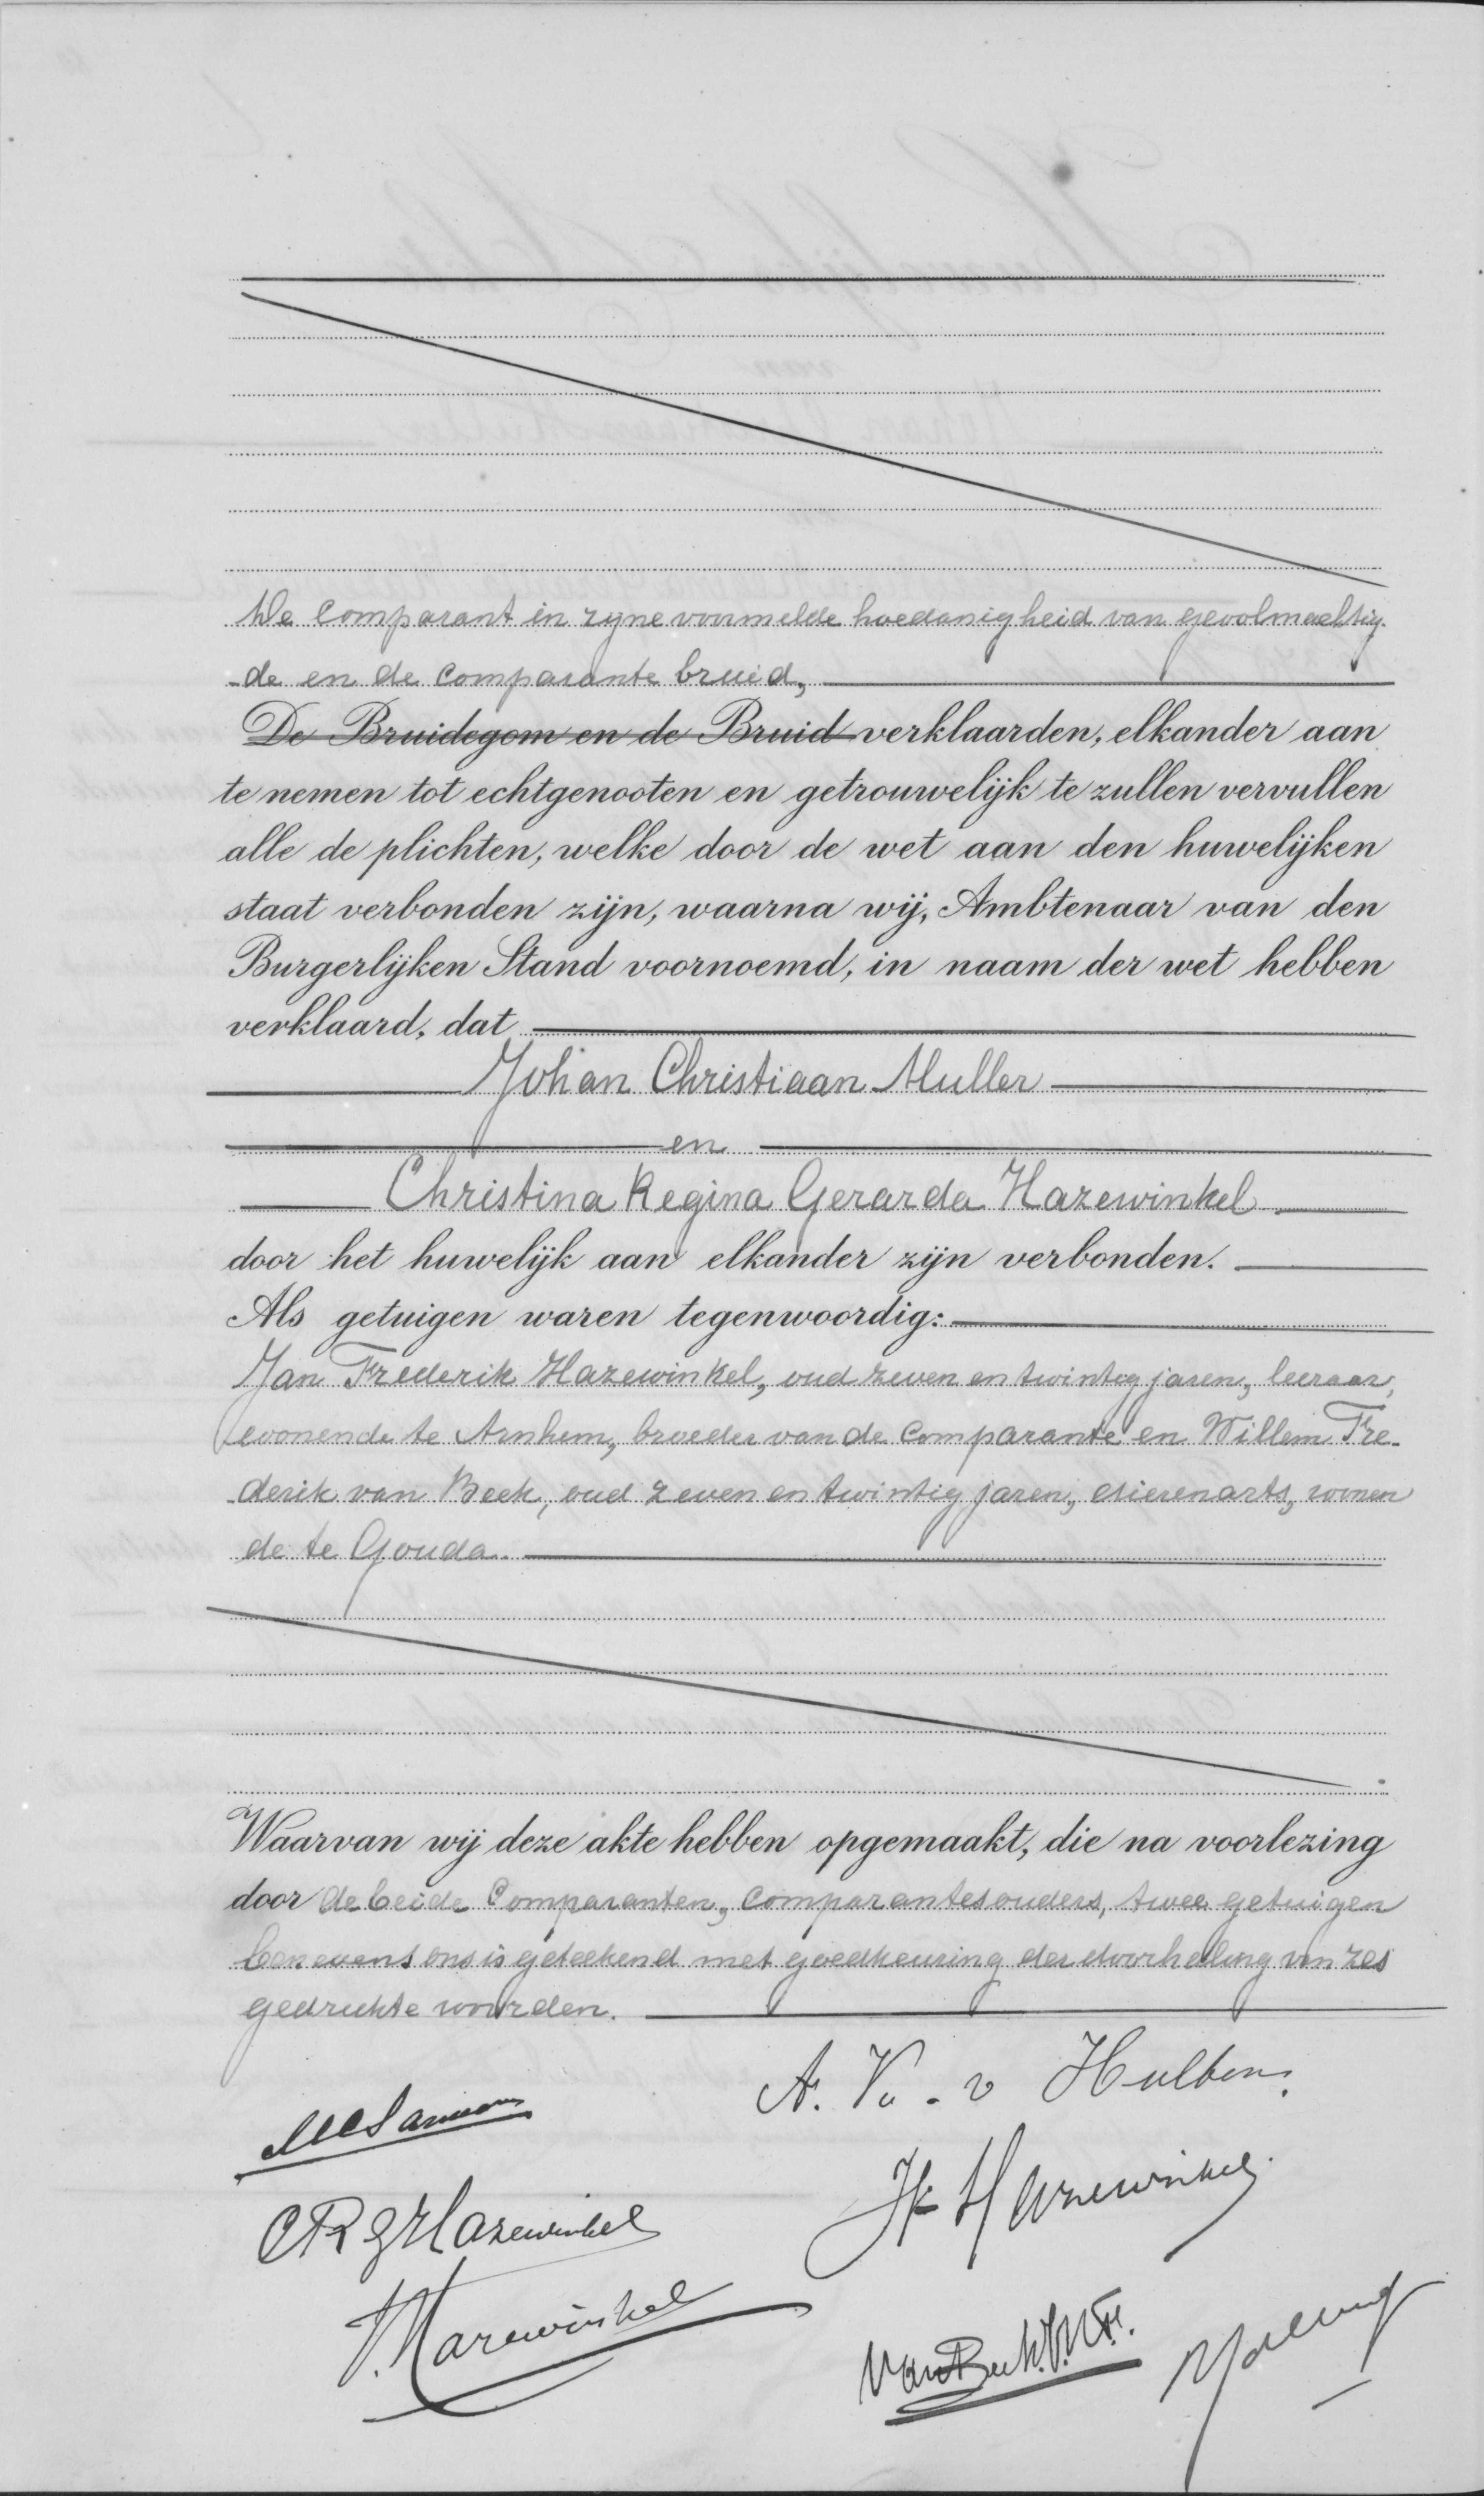 De comparant in zyne voormelde hoedanigheid van gevolmachtig-
-de en de comparante bruid,
De Bruidegom en de Bruid verklaarden, elkander aan
te nemen tot echtgenooten en getrouwelijk te zullen vervullen
alle de plichten, welke door de wet aan den huwelijken
staat verbonden zijn, waarna wij, Ambtenaar van den
Burgerlijken Stand voornoemd, in naam der wet hebben
verklaard, dat
Johan Christiaan Muller
en
Christina Regina Gerarda Hazewinkel
door het huwelijk aan elkander zijn verbonden.
Als getuigen waren tegenwoordig:
Jan Frederik Hazewinkel, oud zeven en twintig jaren, leeraar,
wonende te Arnhem, broeder van de comparante en Willem Fre-
derik van Beek, oud zeven en twintig jaren, dierenarts, wonen
de te Gouda.
Waarvan wij deze akte hebben opgemaakt, die na voorlezing
door de beide comparanten, comparantes ouders, twee getuigen
benevens ons is geteekend met goedkeuring der doorhaling van zes
gedrukte woorden.
A. v. Hulben
CRG Hazewinkel
JF Hazewinkel
J. Hazewinkel
van Beek. W.F.